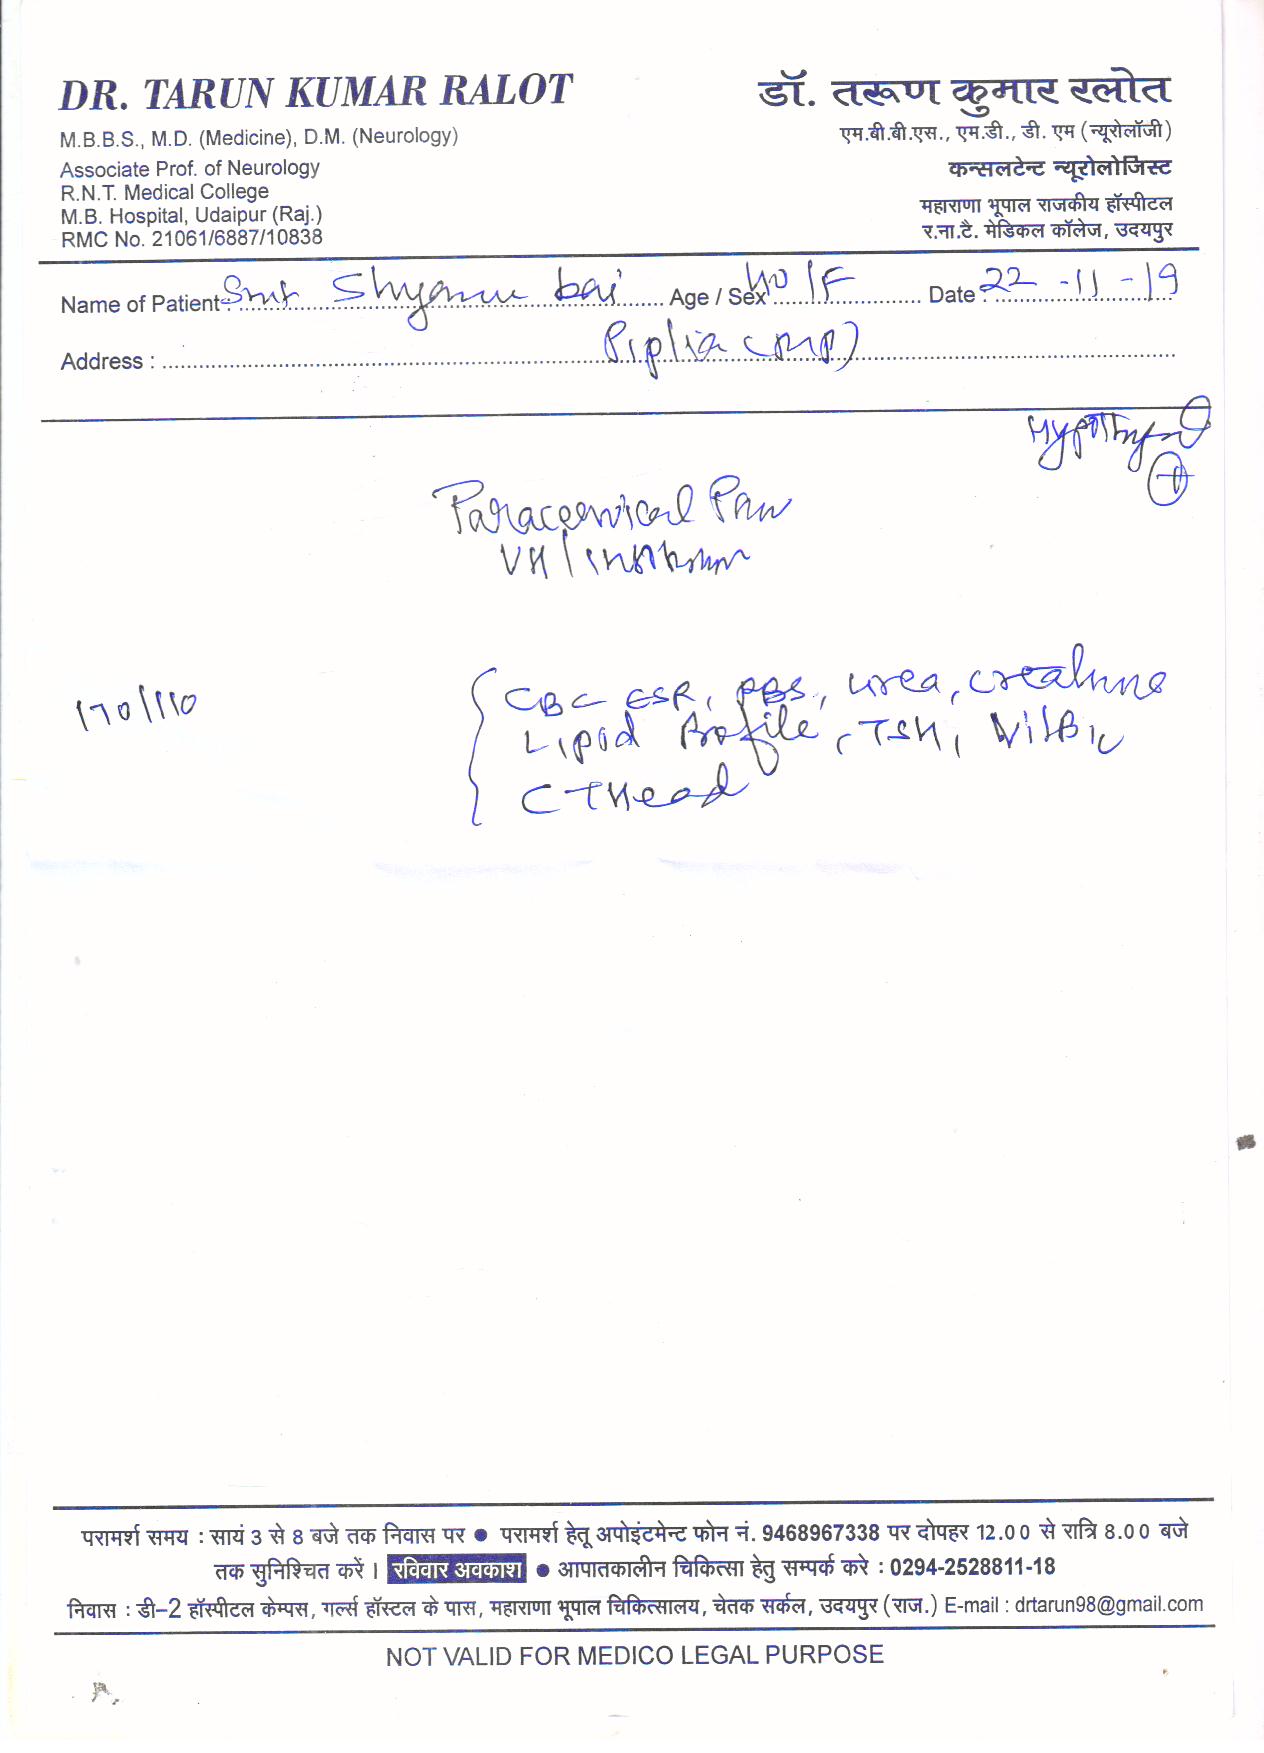 DR. TARUN KUMAR RALOT
M.B.B.S., M.D. (Medicine), D.M. (Neurology)
Associate Prof. of Neurology
R.N.T. Medical College
M.B. Hospital, Udaipur (Raj.)
RMC No. 21061/6887/10838
डॉ. तरूण कुमार रलोत
एम.बी.बी.एस., एम.डी., डी. एम (न्यूरोलॉजी)
कन्सलटेन्ट न्यूरोलोजिस्ट
महाराणा भूपाल राजकीय हॉस्पीटल
र.ना.टै. मेडिकल कॉलेज, उदयपुर
Name of Patient : Smt bai Age / Sex 40/F Date : 22-11-19
Address : Piplia (MP)
Paracervical Pain
170/110
CBC ESR, urea, creatinine
Lipid Profile, TSH, VitB12
CT Head
परामर्श समय : सायं 3 से 8 बजे तक निवास पर ● परामर्श हेतू अपोइंटमेन्ट फोन नं. 9468967338 पर दोपहर 12.00 से रात्रि 8.00 बजे
तक सुनिश्चित करें । रविवार अवकाश ● आपातकालीन चिकित्सा हेतु सम्पर्क करे : 0294-2528811-18
निवास : डी–2 हॉस्पीटल केम्पस, गर्ल्स हॉस्टल के पास, महाराणा भूपाल चिकित्सालय, चेतक सर्कल, उदयपुर (राज.) E-mail : drtarun98@gmail.com
NOT VALID FOR MEDICO LEGAL PURPOSE